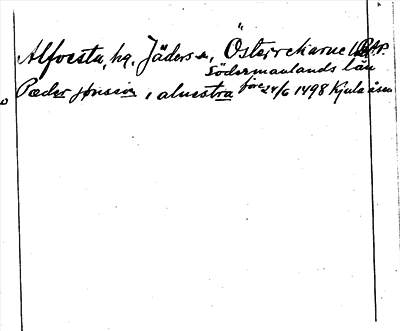 Alfvesta, hg. Jäders sn, Österrekarne
Södermanlands län
Pæder jønssin i aluestra före 24/6 1498 Kjula åsen